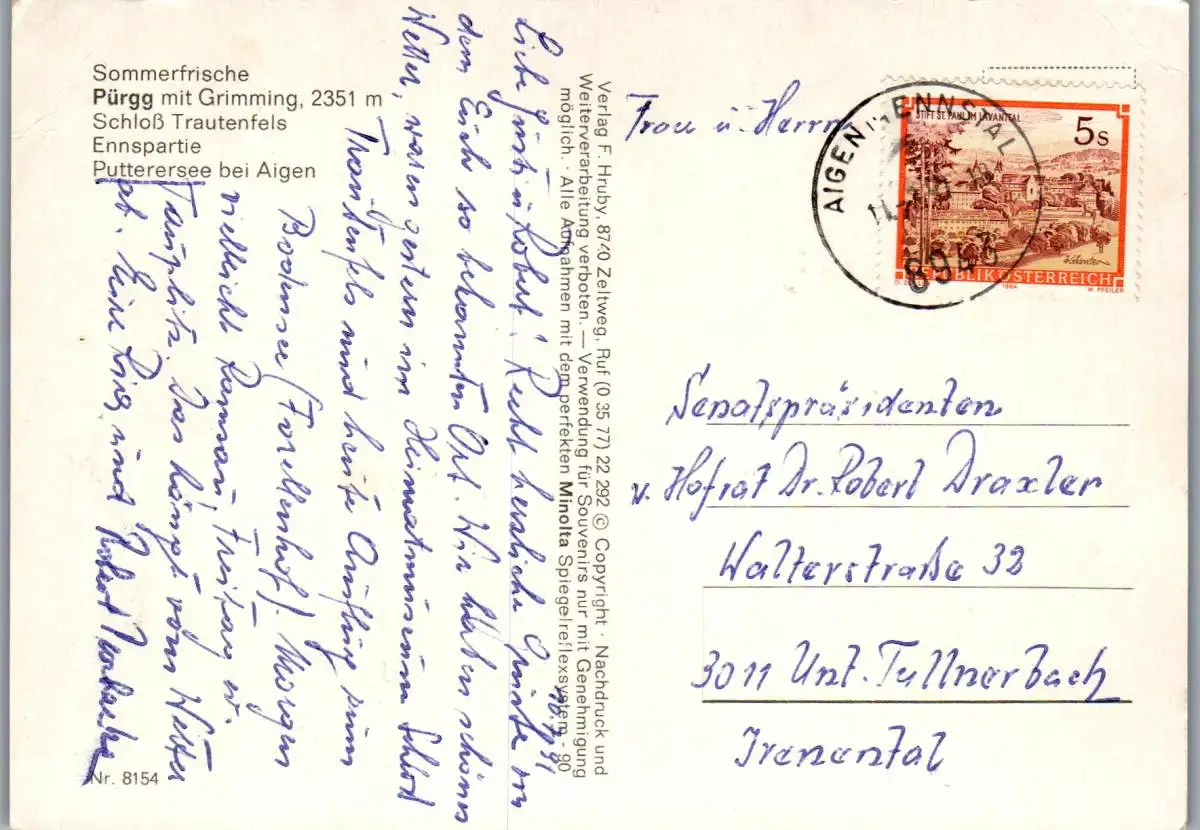 Sommerfrische
Pürgg mit Grimming, 2351 m
Schloß Trautenfels
Ennspartie
Putterersee bei Aigen
Liebe Gusti u. Robert! Recht herzliche Grüße von
dem Euch so bekannten Ort. Wir haben schönes
Wetter, waren gestern im Heimatmuseum Schloß
Trautenfels und heute Ausflug zum
Bodensee (Forellenhof). Morgen
vielleicht Ramsau, Freitag ev.
Tauplitz. Das hängt vom Wetter
ab. Eure und Robert
10.7.91
Nr. 8154
Verlag F. Hruby, 8740 Zeltweg, Ruf (0 35 77) 22 292 © Copyright · Nachdruck und
Weiterverarbeitung verboten. — Verwendung für Souvenirs nur mit Genehmigung
möglich. · Alle Aufnahmen mit dem perfekten Minolta Spiegelreflexsystem - 90
AIGEN im ENNSTAL
8943
STIFT ST. PAUL IM LAVANTTAL
5s
REPUBLIK ÖSTERREICH
1984
W. PFEILER
Frau u. Herrn
Senatspräsidenten
v. Hofrat Dr. Robert Draxler
Walterstraße 32
3011 Unt. Tullnerbach
Irenental